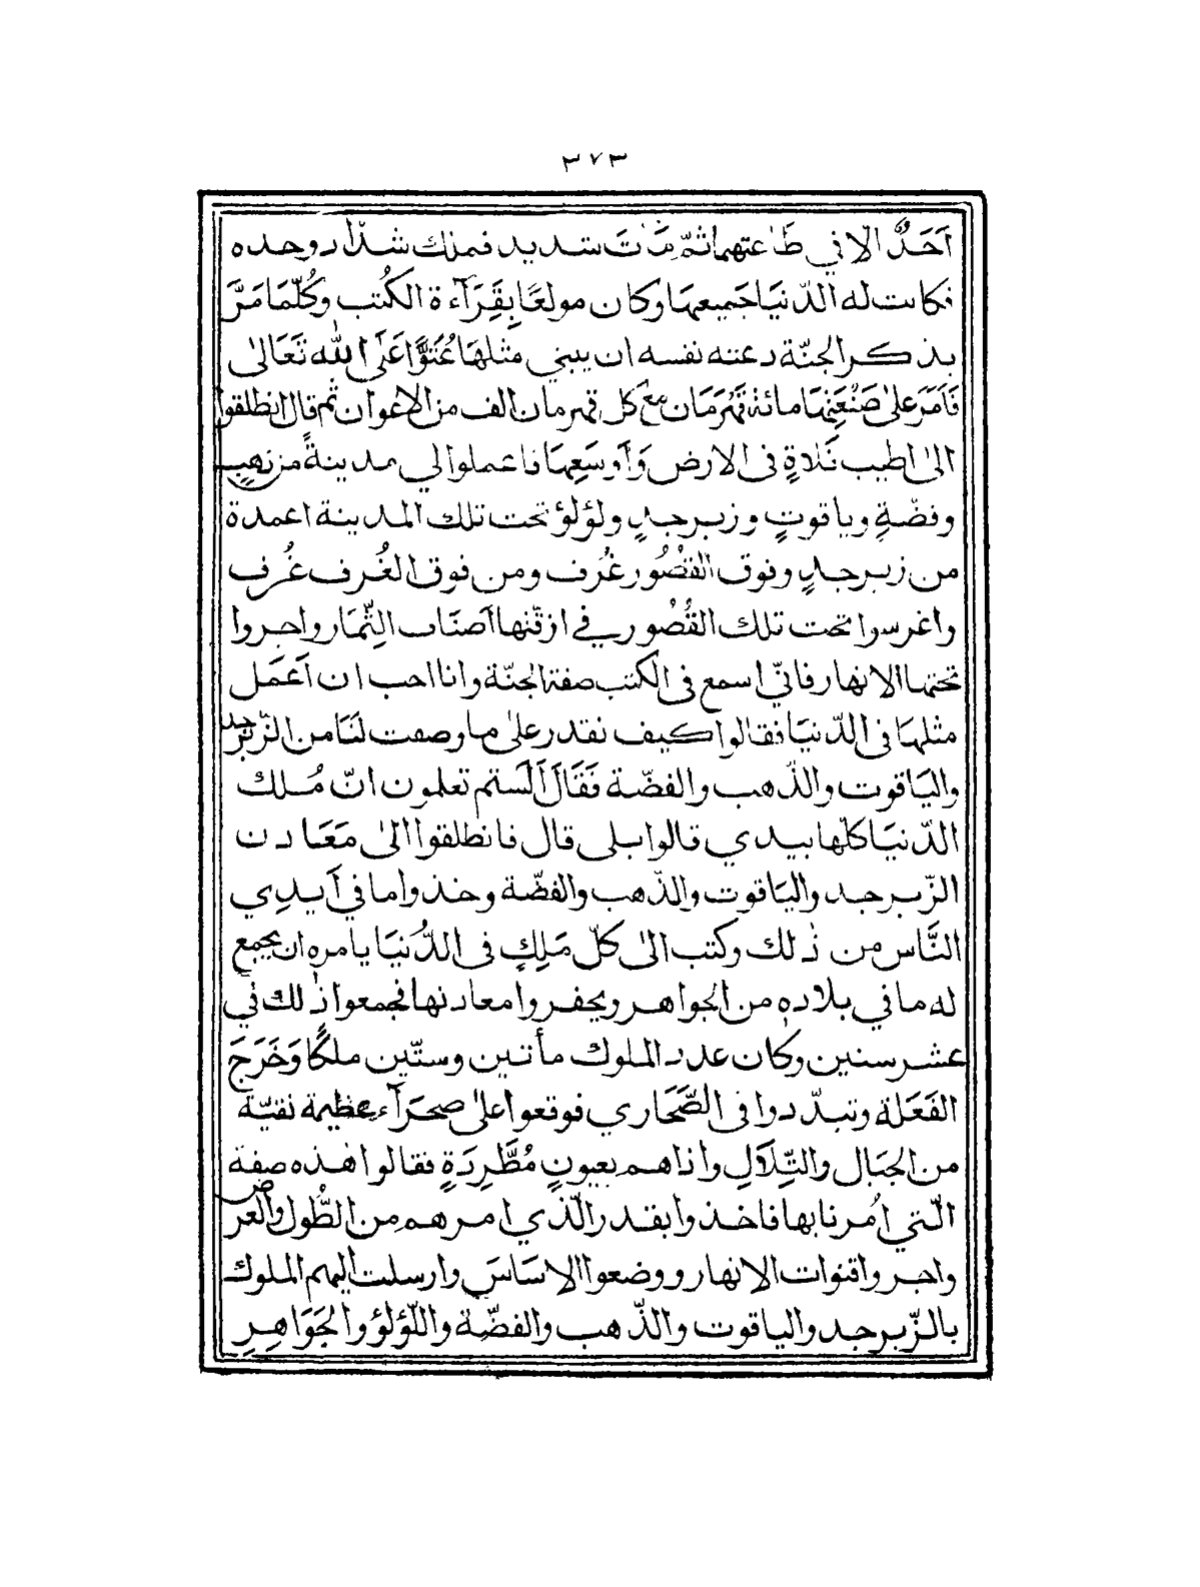 ٣٧٣
اَحَدٌ الا في طَاعتهما ثمّ مَاتَ شديد فملك شدّاد وحده
فكانت له الدّنيَا جَميعهَا وكان مولعًا بِقِرَآءة الكُتب وكُلّمَا مَرَّ
بذكر الجنّة دعته نفسه ان يبني مثلهَا عُتوًّا عَلَى اللّٰه تَعَالىٰ
فَاَمَرَ علىٰ صَنْعَتِهَا مائة قَهْرَمَان مع كل قهرمان الف من الاعوان ثم قال انطلقوا
الىٰ اطيب فَلاةٍ فى الارض وَاَوسَعِهَا فاعملوا لي مدينةً من ذهبٍ
وفضّةٍ وياقوتٍ وزبرجدٍ ولؤلؤ تحت تلك المدينة اعمدة
من زبرجدٍ وفوق القُصُور غُرَف ومن فوق الغُرف غُرف
واغرسوا تحت تلك القُصُور في ازقّتها اَصنَاف الثِّمَار واجروا
تحتها الانهار فانّي اسمع فى الكتب صفة الجنّة وانا احب ان اَعمَل
مثلهَا فى الدّنيَا فقالوا كيف نقدر علىٰ ما وصفت لنَا من الزّبرجد
واليَاقوت والذّهب والفضّة فَقَالَ اَلَستم تعلمون انّ مُلك
الدّنيَا كلّها بيدي قالوا بلى قال فانطلقوا الىٰ مَعَادن
الزّبرجد واليَاقوت والذّهب والفضّة وخذوا ما في اَيدِي
النَّاس من ذٰلك وكتب الىٰ كلّ مَلِكٍ فى الدُّنيَا يامره ان يجمع
له ما في بلاده من الجواهر ويحفروا معادنها فجمعوا ذٰلك في
عشر سنين وكان عدد الملوك مأتين وستّين ملكًا وَخَرَجَ
الفَعَلة وتبدّدوا فى الصَّحَاري فوقعوا علىٰ صحرَآء عظيمة نقيّة
من الجبَال والتِّلَالِ واذا هم بعيونٍ مُطَّرِدَةٍ فقالوا هٰذه صفة
الّتي اُمرنا بها فاخذوا بقدر الّذي امرهم من الطُّول والعرض
واجروا قنوات الانهار ووضعوا الاسَاسَ وارسلت اليهم الملوك
بالزّبرجد والياقوت والذّهب والفضّة واللّؤلؤ والجَوَاهِرِ